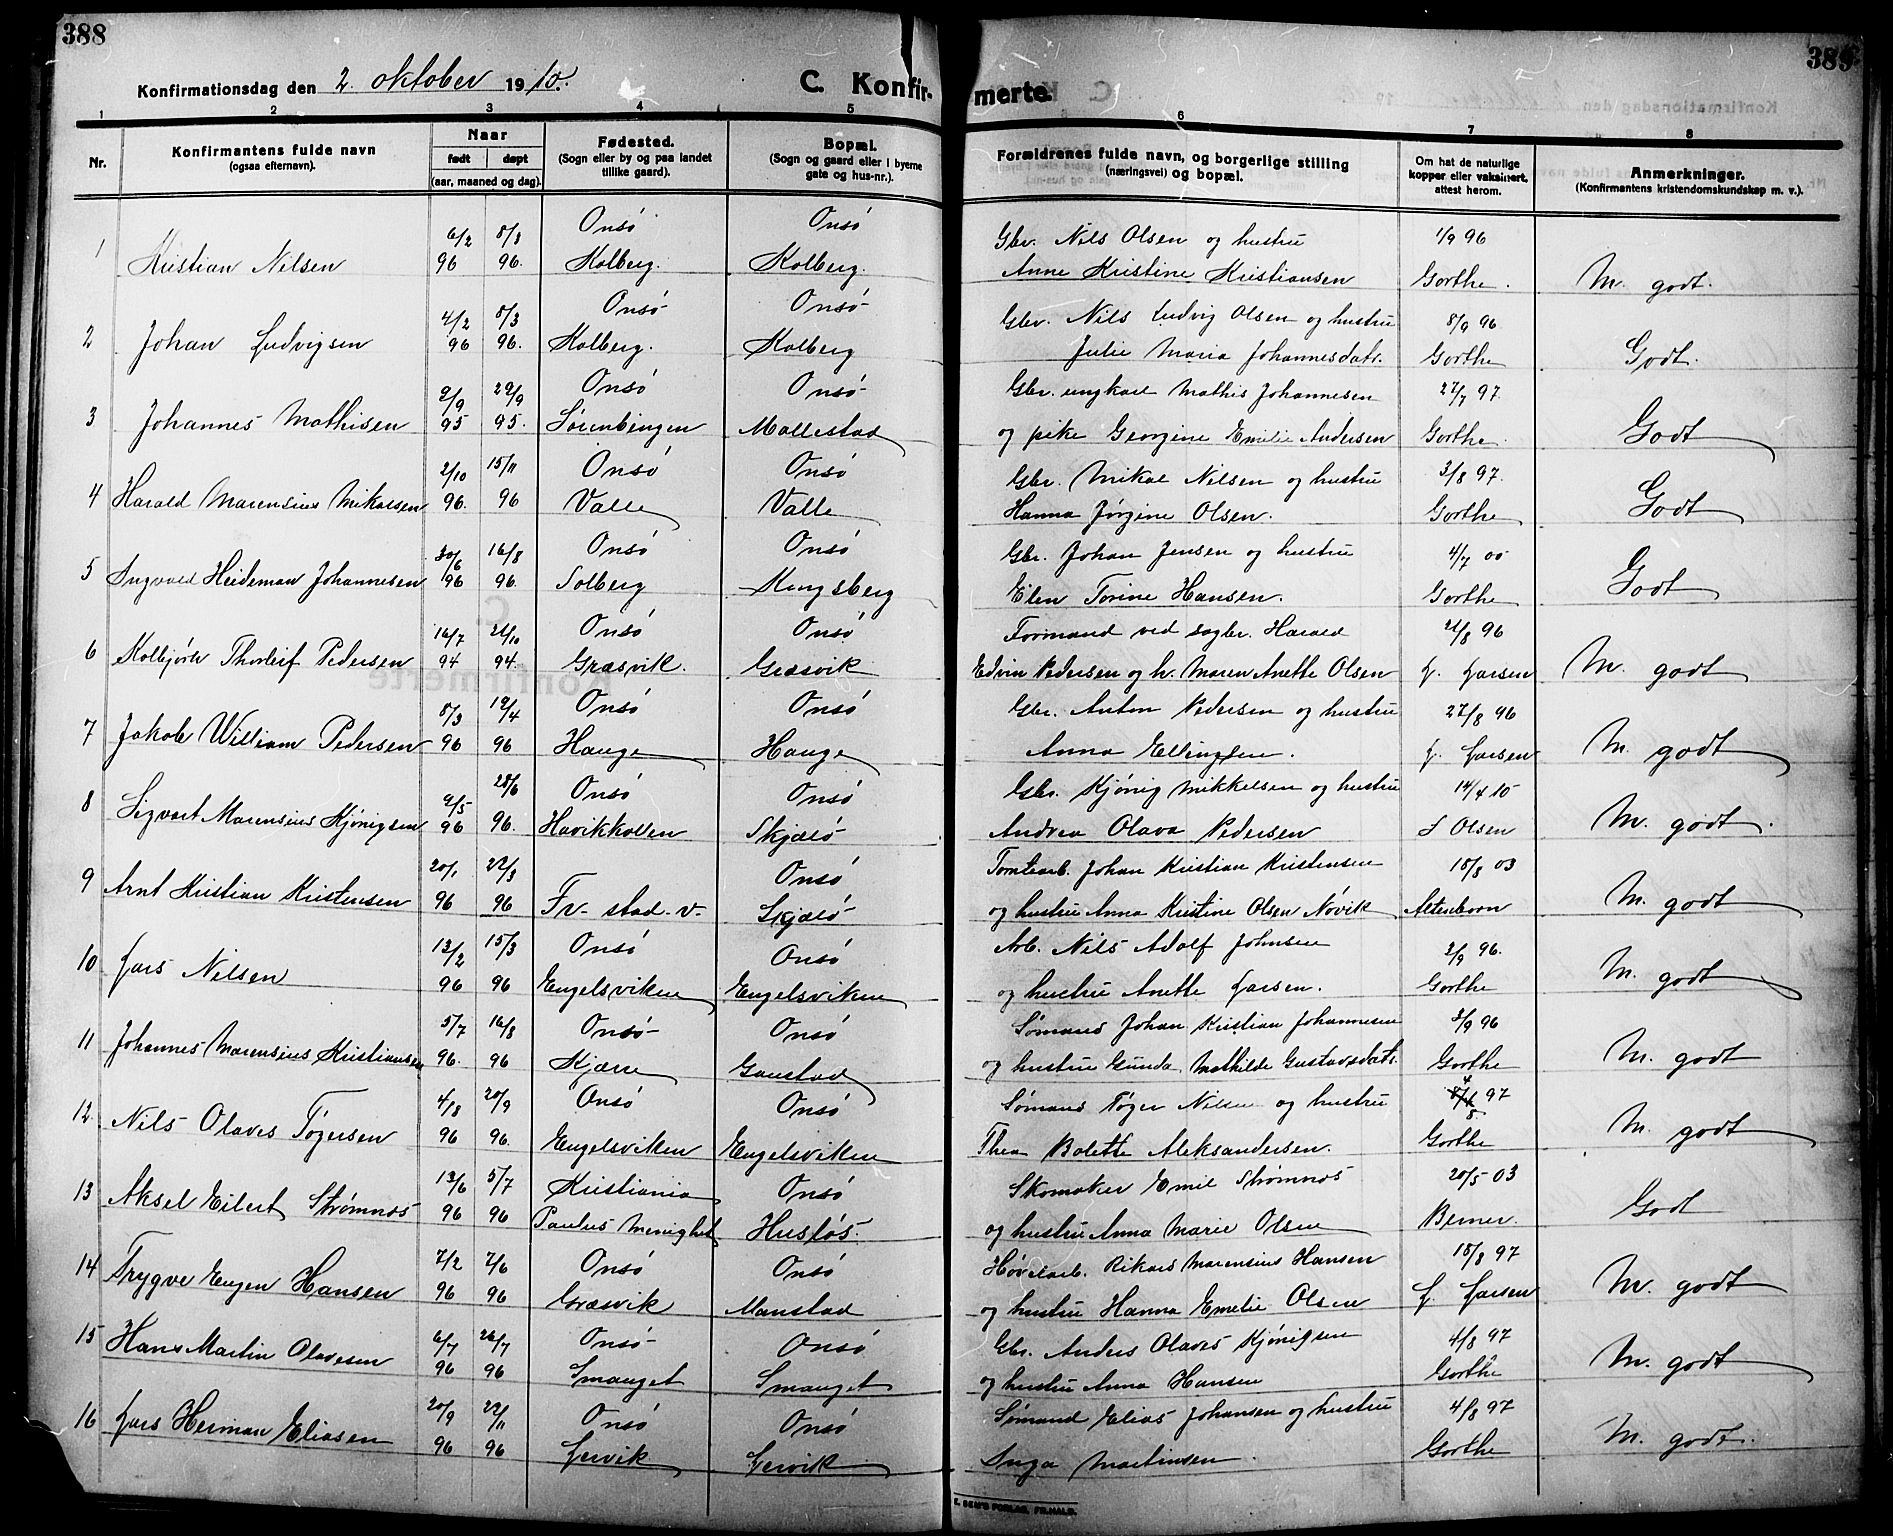 388
389
Konfirmationsdag den 2. oktober 1910.
C. Konfirmerte.
1 2 3 4 5 6 7 8
Nr.
Konfirmantens fulde navn
(ogsaa efternavn).
Naar
født døpt
(aar, maaned og dag).
Fødested.
(Sogn eller by og paa landet
tillike gaard).
Bopæl.
(Sogn og gaard eller i byerne
gate og hus-nr.).
Forældrenes fulde navn, og borgerlige stilling
(næringsvei) og bopæl.
Om hat de naturlige
kopper eller vaksinert,
attest herom.
Anmerkninger.
(Konfirmantens kristendomskundskap m. v.).
6/2 8/3 Onsø Onsø Gbr. Nils Olsen og hustru 1/9 96
1 Kristian Nilsen 96 96. Kolberg. Kolberg. Anne Kristine Kristiansen Gorthe. M. godt.
4/2 8/3 Onsø Onsø Gbr. Nils Ludvig Olsen og hustru 8/9 96
2 Johan Ludvigsen 96 96. Kolberg. Kolberg Julie Maria Johannesdatr. Gorthe Godt.
2/9 29/9 Onsø Onsø Gbr. ungkarl Mathis Johannesen 27/7 97.
3 Johannes Mathisen 95 95. Sørenbingen Mallestad og pike Georgine Emilie Andersen Gorthe. Godt
2/10 15/11 Onsø Onsø Gbr. Mikal Nilsen og hustru 3/8 97.
4 Harald Marensius Mikalsen 96. 96 Valle Valle Hanna Jørgine Olsen. Gorthe Godt
30/6 16/8 Onsø Onsø Gbr. Johan Jensen og hustru 4/7 00
5 Ingvald Heideman Johannesen 96 96. Solberg Kongsberg Elen Torine Hansen. Gorthe Godt
16/7 21/10 Onsø Onsø Formand ved sagbr. Harald 21/8 96
6 Kolbjørn Thorleif Pedersen 94 94. Græsvik. Græsvik Edvin Pedersen og h. Maren Anette Olsen L. Larsen M. godt
8/3 12/4 Onsø Onsø Gbr. Anton Pedersen og hustru 27/8 96
7 Jakob William Pedersen 96 96 Hauge Hauge Anna Ellingsen. L. Larsen M. godt
9/5 28/6 Onsø Onsø Gbr. Kjønig Mikkelsen og hustru 14/4 10
8 Sigvart Marensius Kjønigsen 96 96. Havikkollen Skjælø Andrea Olava Pedersen S Olsen M. godt.
20/1 22/3 Onsø Tomtearb. Johan Kristian Kristensen 18/8 03
9 Arnt Kristian Kristensen 96 96 Fr-stad. v. Skjælø og hustru Anna Kristine Olsen Nøvik Altenborn M. godt
13/2 15/3 Onsø Onsø Arb. Nils Adolf Johnsen 2/9 96.
10 Lars Nilsen 96 96 Engelsviken Engelsviken og hustru Anette Larsen. Gorthe M. godt
5/7 16/8 Onsø Onsø Sømand Johan Kristian Johannesen 3/9 96
11 Johannes Marensius Kristiansen 96. 96 Kjære Gaustad og hustru Gunda Mathilde Gustavsdatr. Gorthe M. godt
4/8 20/9 Onsø Onsø Sømand Tøger Nilsen og hustru 97
12 Nils Olaves Tøgersen 96 96. Engelsviken Engelsviken Thea Bolette Aleksandersen. Gorthe M. godt
13/6 5/7 Kristiania Onsø Skomaker Emil Strømnæs 20/5 03
13 Aksel Eilert Strømnæs 96 96 Paulus Menighet Husløs. og hustru Anna Marie Olsen Berner. Godt
7/2 7/6 Onsø Onsø Høvlearb. Rikard Marensius Hansen 18/8 97
14 Trygve Eugen Hansen 96 96 Græsvik Manstad og hustru Hanna Emelie Olsen L. Larsen M. godt
6/7 26/7 Onsø Onsø Gbr. Anders Olaves Kjønigsen 4/8 97
15 Hans Martin Olavesen 96 96 Smauget Smauget og hustru Anna Hansen Gorthe M. godt
20/9 22/11 Onsø Onsø Sømand Elias Johansen og hustru 4/8 97
16 Lars Herman Eliasen 96 96 Lervik Lervik Inga Martinsen. Gorthe M. godt.
E. SEM'S FORLAG, FR.HALD.